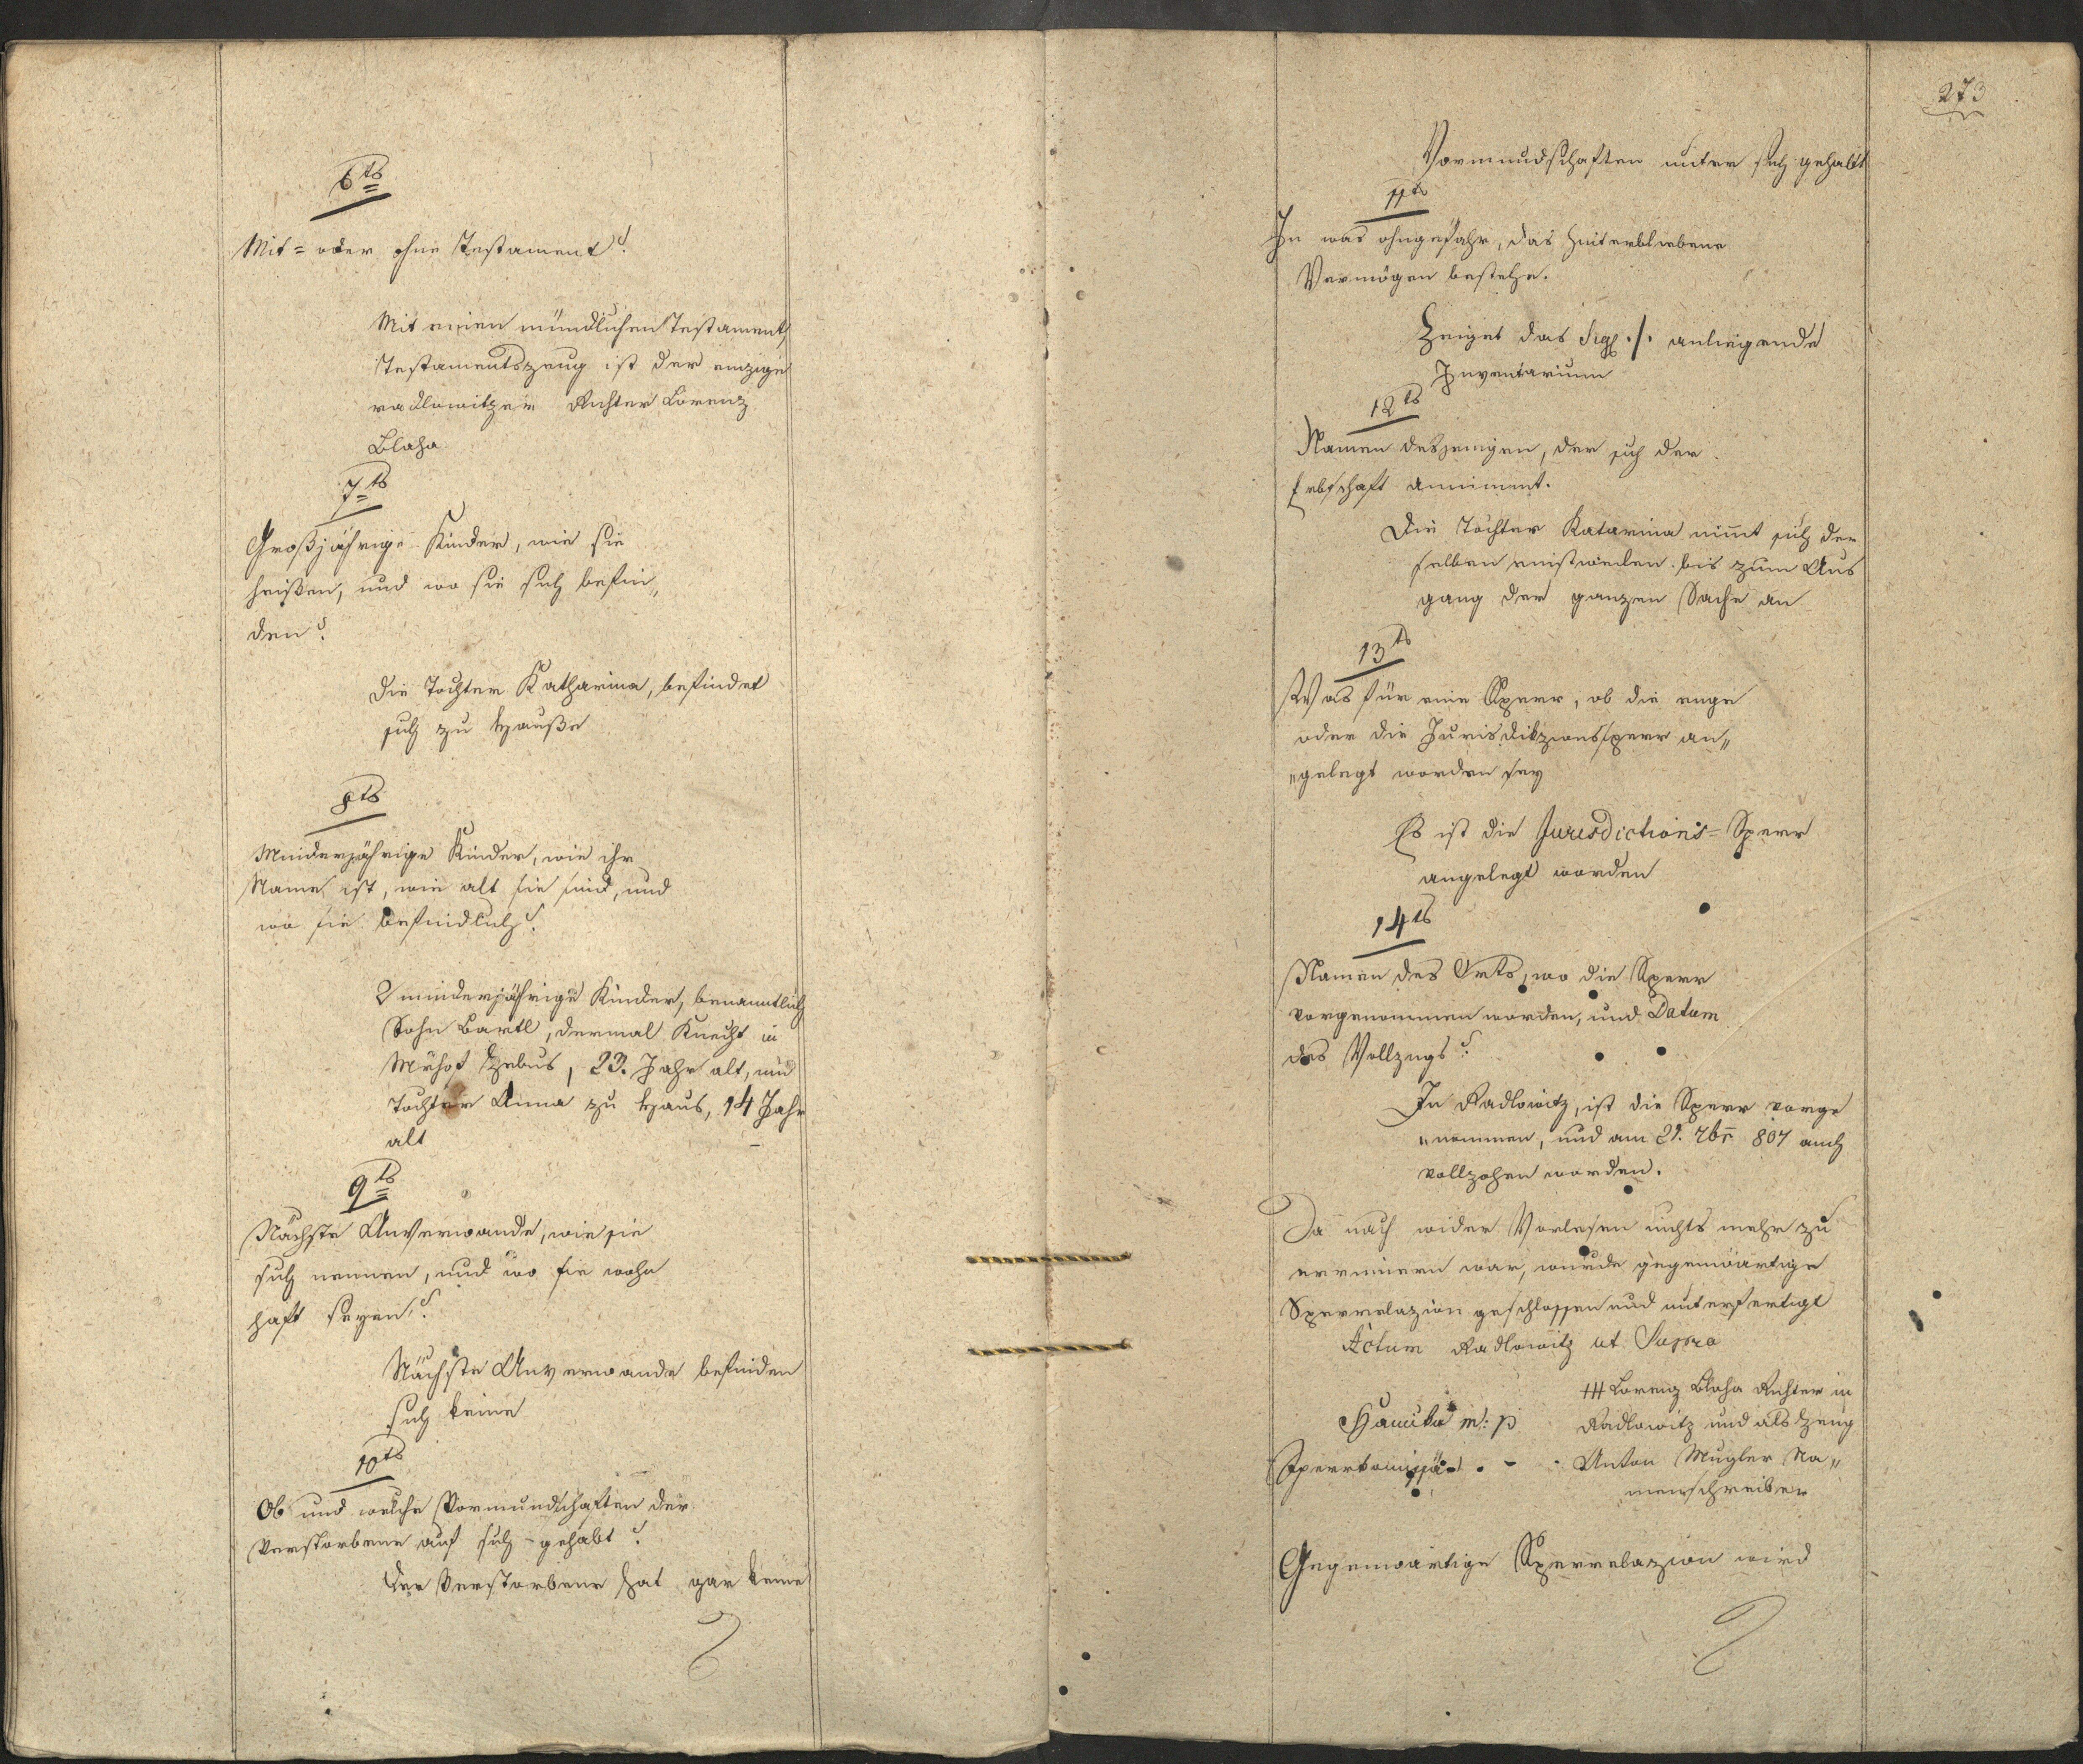 6ts
Mit= oder ohne Testament?
Mit einen mündlichen Testament,
Testamentszeug ist der einzige
radlowitzer Richter Lorenz
Blaha
7ts
Großjährige Kinder, wie sie
heißen, und wo sie sich befin„
den?
Die Tochter Katharina, befindet
sich zu Hauße
8ts
Minderjährige Kinder, wie ihr
Name ist, wie alt sie sind, und
wo sie befindlich?
2 minderjährige Kinder, benanntlich
Sohn Bartl, dermal Knecht in
Mrhof Zebus, 23. Jahr alt, und
Tochter Anna zu Haus, 14 Jahr
alt
9ts
Nächste Anverwande, wie sie
sich nennen, und wo sie wohn
haft seyen?
Nächste Anverwande befinden
sich keine
10ts
Ob und welche Vormundschaften der
Verstorbene auf sich gehabt?
Der Verstorbene hat gar keine
273
Vormundschaften unter sich gehabt
11ts
In was ohngefähr, das hinterbliebene
Vermögen bestehe.
Zeiget das ./. anliegende
Inventarium
12ts
Namen desjenigen, der sich der
Erbschaft annimmt.
Die Tochter Katarina nimt sich der
selben einstweilen bis zum Aus
gang der ganzen Sache an
13ts
Was für eine Sperr, ob die enge
oder die Jurisdikzionssperr an„
„gelegt worden sey
Es ist die Jurisdictions= Sperr
angelegt worden
14ts
Namen des Orts, wo die Sperr
vorgenommen worden, und Datum
des Vollzugs?
In Radlowitz, ist die Sperr vorge
„nommen, und am 21. 7br 807 auch
vollzohen worden.
Da nach wider Vorlesen nichts mehr zu
erinnern war, wurde gegenwärtige
Sperrelazion geschlossen und unterfertigt
Actum Radlowitz ut Supra
+++ Lorenz Blaha Richter in
m: p Radlowitz und als Zeug
Sperrkomissär Anton Mugler Na„
menschreiber
Gegenwärtige Sperrelazion wird